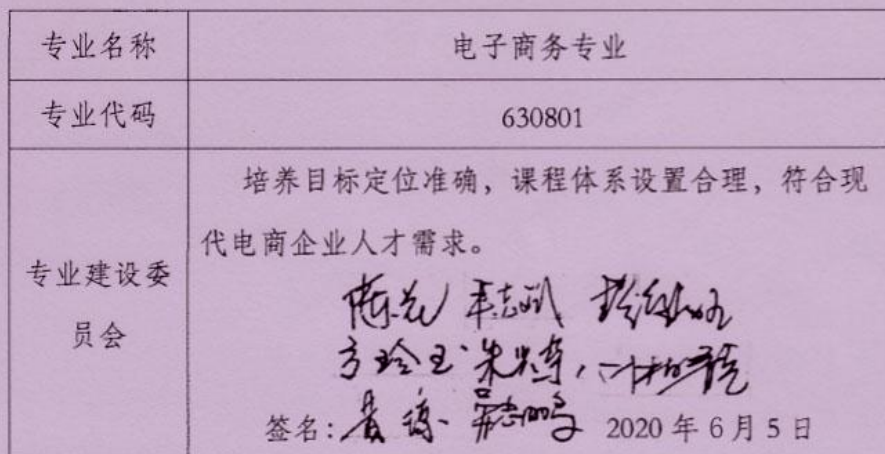 专业名称
电子商务专业
专业代码
630801
专业建设委
员会
培养目标定位准确，课程体系设置合理，符合现
代电商企业人才需求。
签名： 2020年6月5日